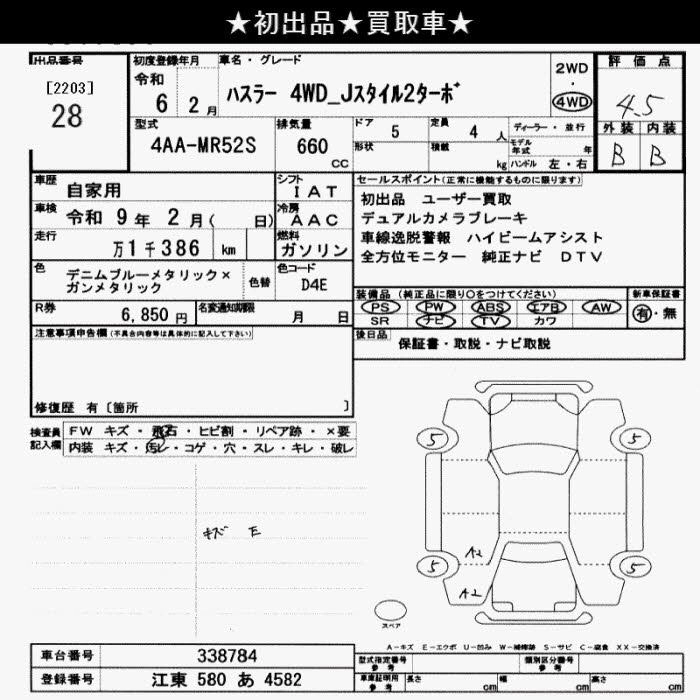 ★初出品★買取車★
出品番号
[2203]
28
初度登録年月
令和
6 2月
車名・グレード
ハスラー 4WD_Jスタイル2ターボ
2WD
・
4WD
評価点
4.5
外装 内装
B B
型式
4AA-MR52S
排気量
660
CC
ドア 5
形状
定員 4 人
積載 kg
ディーラー・並行
モデル年式 年
ハンドル 左・右
車歴 自家用
車検 令和 9年 2月( 日)
走行
万1千386 km
シフト
IAT
冷房
AAC
燃料
ガソリン
セールスポイント(正常に機能するものに限ります)
初出品 ユーザー買取
デュアルカメラブレーキ
車線逸脱警報 ハイビームアシスト
全方位モニター 純正ナビ DTV
色
デニムブルーメタリック×
ガンメタリック
色替
色コード
D4E
R券
6,850円
名変通知期限
月 日
装備品(純正品に限り○をつけてください)
PS PW ABS エアB AW
SR ナビ TV カワ
新車保証書
有・無
注意事項申告欄(不具合内容等は具体的に記入して下さい)
後日品
保証書・取説・ナビ取説
修復歴 有〔箇所 〕
検査員
記入欄
FW キズ・飛石・ヒビ割・リペア跡・×要
内装 キズ・汚レ・コゲ・穴・スレ・キレ・破レ
キズ E
5 5
A2
5 5
A2
スペア
A-キズ E-エクボ U-凹み W-補修跡 S-サビ C-腐食 XX-交換済
車台番号 338784
登録番号 江東 580 あ 4582
型式指定番号
参考
類別区分番号
参考
車庫証明用
参考
長さ cm 幅 cm 高さ cm